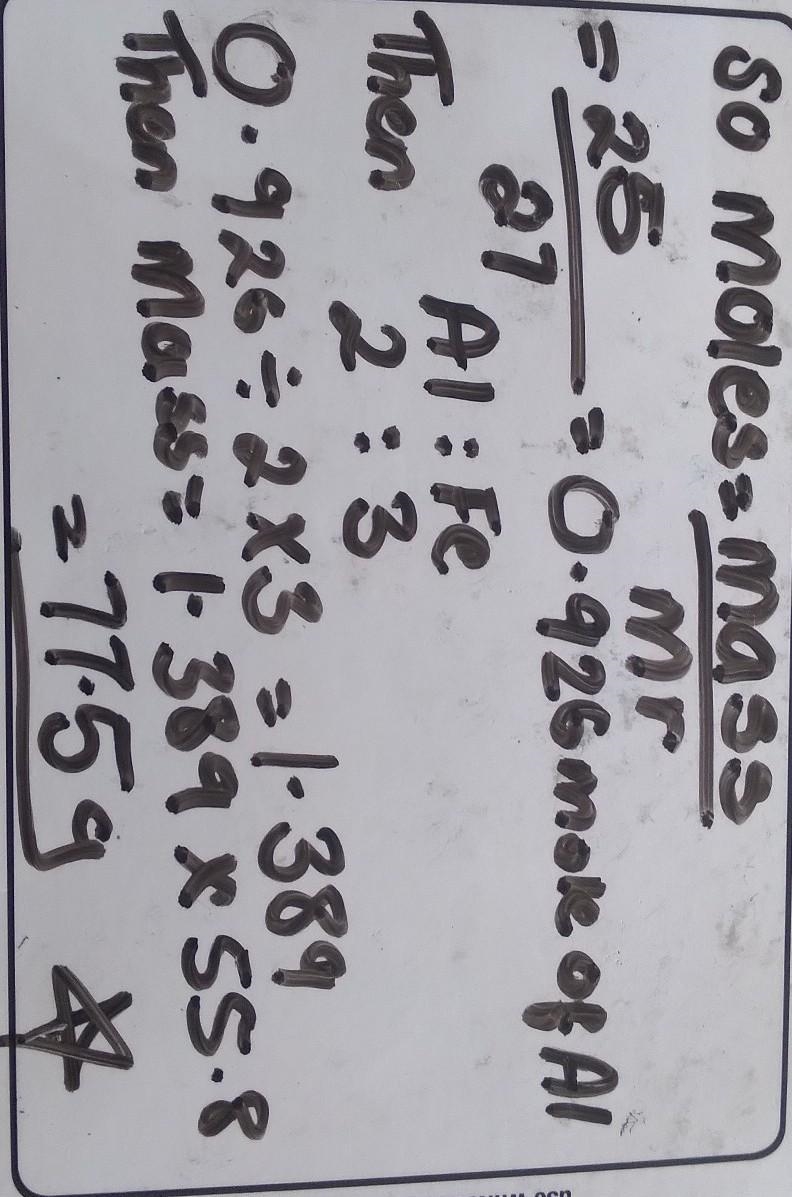 So Moles = mass
Mr
= 25
27
= 0.926 mole of Al
Then
Al : Fe
2 : 3
0.926 ÷ 2 x 3 = 1.389
Then Mass = 1.389 x 55.8
= 77.5g